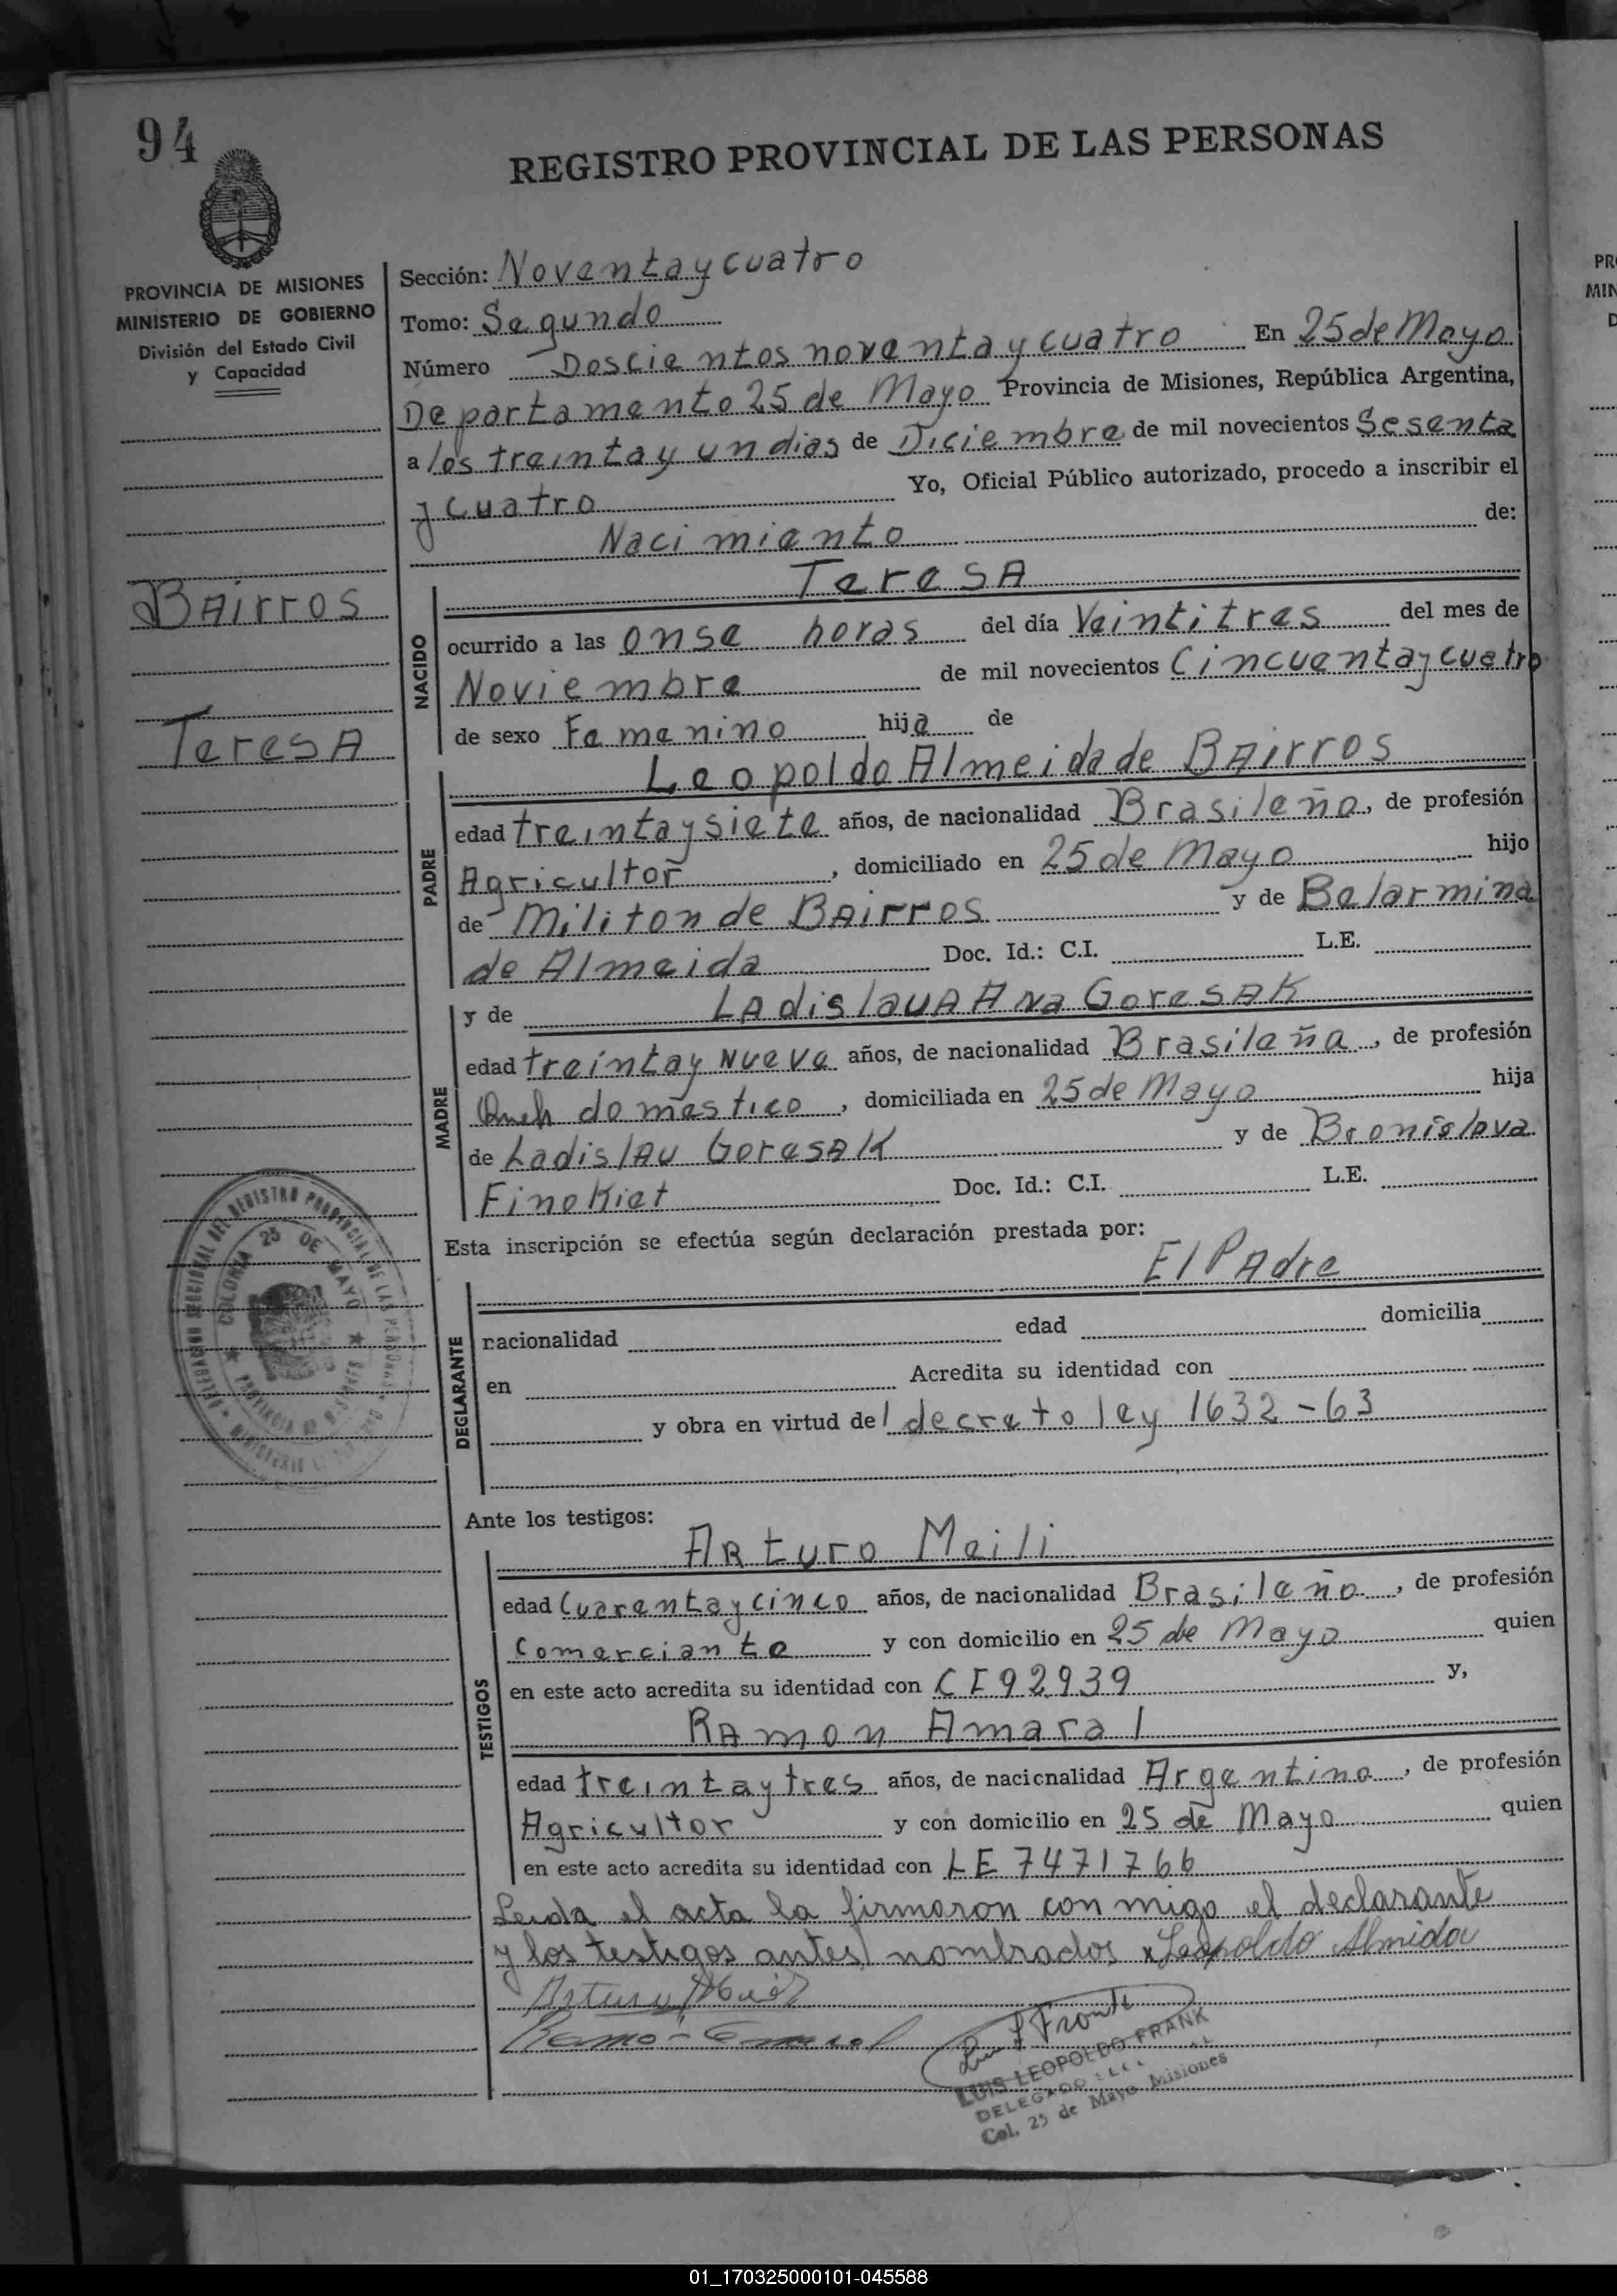 94
REGISTRO PROVINCIAL DE LAS PERSONAS
PROVINCIA DE MISIONES
MINISTERIO DE GOBIERNO
División del Estado Civil
y Capacidad
Bairros
Teresa
Sección: Noventa y cuatro
Tomo: Segundo
Número Doscientos noventa y cuatro En 25 de Mayo
Departamento 25 de Mayo Provincia de Misiones, República Argentina,
a los treinta y un dias de Diciembre de mil novecientos Sesenta
y cuatro Yo, Oficial Público autorizado, procedo a inscribir el
Nacimiento de:
Teresa
NACIDO
ocurrido a las onse horas del día Veintitres del mes de
Noviembre de mil novecientos Cincuenta y cuatro
de sexo Femenino hija de
Leopoldo Almeida de Bairros
PADRE
edad treinta y siete años, de nacionalidad Brasileña, de profesión
Agricultor, domiciliado en 25 de Mayo hijo
de Militon de Bairros y de Belarmina
de Almeida Doc. Id.: C.I. L.E.
y de Ladislaua Ana Goresak
MADRE
edad treinta y Nueve años, de nacionalidad Brasileña, de profesión
Queh domestico, domiciliada en 25 de Mayo hija
de Ladislau Goresak y de Bronislava
Finokiet Doc. Id.: C.I. L.E.
Esta inscripción se efectúa según declaración prestada por:
El Padre
DECLARANTE
nacionalidad edad domicilia
en Acredita su identidad con
y obra en virtud del decreto ley 1632-63
DELEGACION SECCIONAL DEL REGISTRO PROVINCIAL DE LAS PERSONAS
COLONIA 25 DE MAYO
PROVINCIA DE MISIONES
Ante los testigos:
Arturo Meili
TESTIGOS
edad Cuarenta y cinco años, de nacionalidad Brasileño, de profesión
Comerciante y con domicilio en 25 de Mayo quien
en este acto acredita su identidad con CI 92939 y,
Ramon Amaral
edad treinta y tres años, de nacionalidad Argentina, de profesión
Agricultor y con domicilio en 25 de Mayo quien
en este acto acredita su identidad con LE 7471766
Leida el acta la firmaron con migo el declarante
y los testigos antes nombrados x Leopoldo Almida
LUIS LEOPOLDO FRANK
Col. 25 de Mayo Misiones
01_170325000101-045588